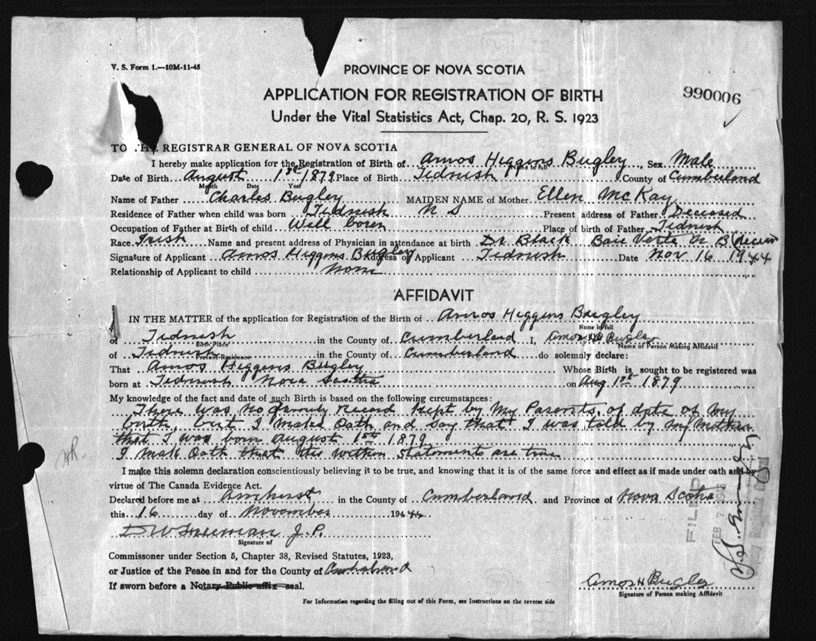 V. S. Form 1.—10M-11-45
PROVINCE OF NOVA SCOTIA
990006
APPLICATION FOR REGISTRATION OF BIRTH
Under the Vital Statistics Act, Chap. 20, R. S. 1923
TO THE REGISTRAR GENERAL OF NOVA SCOTIA
I hereby make application for the Registration of Birth of Amos Higgins Bugley, Sex Male
Name in full
Date of Birth August 1st 1879 Place of Birth Tidnish County of Cumberland
Month Date Year
Name of Father Charles Bugley MAIDEN NAME of Mother Ellen McKay
Residence of Father when child was born Tidnish N S Present address of Father Deceased
Occupation of Father at Birth of child Well borer Place of birth of Father Tidnish
Race Irish Name and present address of Physician in attendance at birth Dr Black Baie Verte N B
Signature of Applicant Amos Higgins Bugley Address of Applicant Tidnish Date Nov 16 1944
Relationship of Applicant to child None
AFFIDAVIT
IN THE MATTER of the application for Registration of the Birth of Amos Higgins Bugley
Name in full
of Tidnish in the County of Cumberland I, Amos H Bugley
Birth Place Name of Person Making Affidavit
of Tidnish in the County of Cumberland do solemnly declare:
Present Residence
That Amos Higgins Bugley Whose Birth is sought to be registered was
born at Tidnish Nova Scotia on Aug 1st 1879
My knowledge of the fact and date of such Birth is based on the following circumstances:
There was no family record kept by my Parents, of date of my
birth, but I make Oath and say that I was told by my Mother
that I was born August 1st 1879
I make Oath that the within statements are true
I make this solemn declaration conscientiously believing it to be true, and knowing that it is of the same force and effect as if made under oath and by
virtue of The Canada Evidence Act.
Declared before me at Amherst in the County of Cumberland and Province of Nova Scotia
this 16 day of November 1944
D W Freeman J.P.
Signature of
Commissioner under Section 5, Chapter 38, Revised Statutes, 1923,
or Justice of the Peace in and for the County of Cumberland
If sworn before a Notary Public affix seal.
Amos H Bugley
Signature of Person making Affidavit
For Information regarding the filling out of this Form, see Instructions on the reverse side
FILED
FEB 7